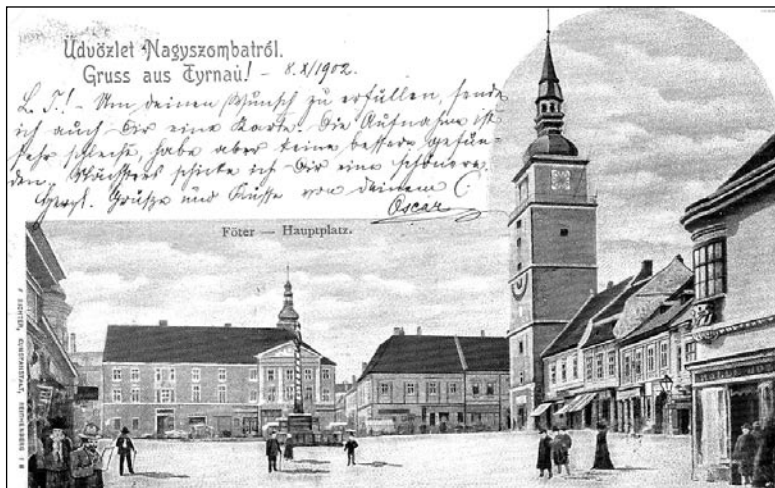 Üdvözlet Nagyszombatról.
Gruss aus Tyrnau! – 8.X/1902.
L. T.! – Um deinen Wunsch zu erfüllen, sende
ich auch Dir eine Karte. Die Aufnahme ist
sehr schlecht, habe aber keine bessere gefun-
den. Nächstens schicke ich Dir eine schönere.
Herzl. Grüsze und Küsse von deinem
Oscar
Föter — Hauptplatz.
RICHTER, KUNSTANSTALT, REICHENBERG I B